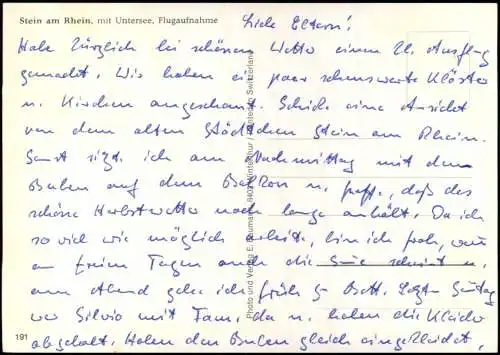 Stein am Rhein, mit Untersee, Flugaufnahme
Liebe Eltern!
Habe kürzlich bei schönem Wetter einen kl. Ausflug
gemacht. Wir haben ein paar sehenswerte Klöster
u. Kirchen angeschaut. Schicke eine Ansicht
von dem alten Städtchen Stein am Rhein.
Sonst sitze ich am Nachmittag mit dem
Buben auf dem Balkon u. hoffe, daß das
schöne Herbstwetter noch lange anhält. Da ich
so viel wie möglich arbeite, bin ich froh, wenn
an freien Tagen auch die Sonne scheint u.
am Abend gehe ich früh zu Bett. Letzten Sonntag
war Silvio mit Fam. da u. haben die Kleider
abgeholt. Haben den Buben gleich eingekleidet,
191
Photo und Verlag E. Baumann, 8400 Winterthur / Printed in Switzerland